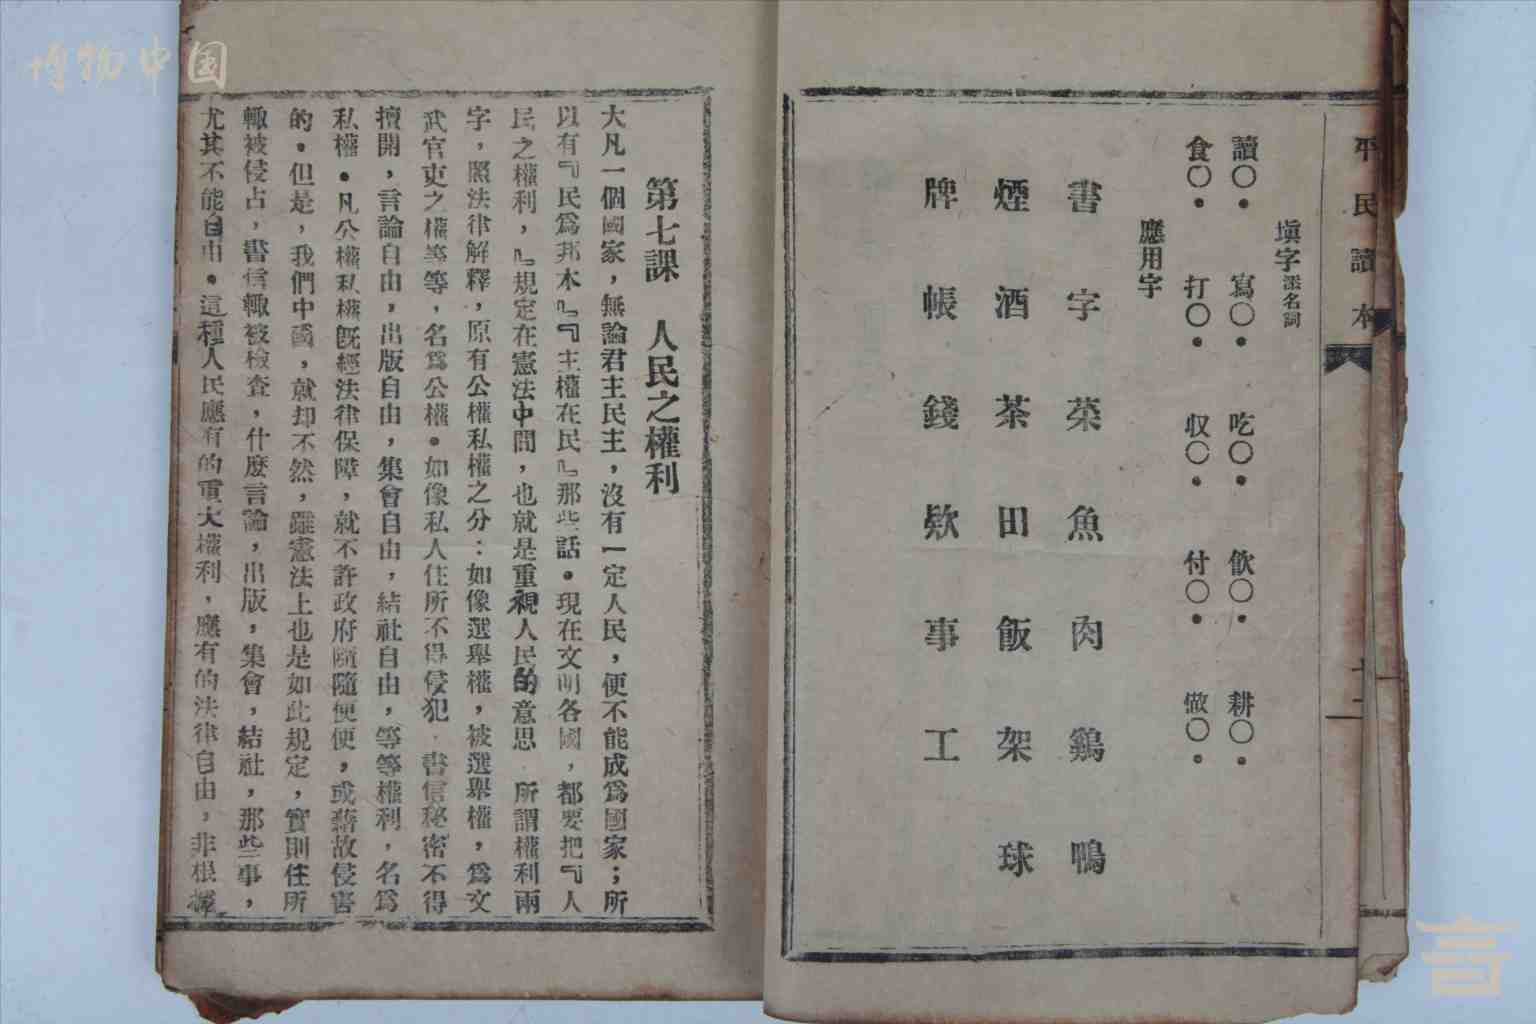 博物中国
平民讀本
填字 添名詞
讀〇．寫〇．吃〇．飲〇．耕〇．
食〇．打〇．収〇．付〇．做〇．
應用字
書字菜魚肉鷄鴨
煙酒茶田飯架球
牌帳錢欵事工
第七課　人民之權利
大凡一個國家，無論君主民主，沒有一定人民，便不能成爲國家；所
以有『民爲邦本』『主權在民』那些話．現在文明各國，都要把『人
民之權利，』規定在憲法中間，也就是重視人民的意思．所謂權利兩
字，照法律解釋，原有公權私權之分：如像選舉權，被選舉權，爲文
武官吏之權等等，名爲公權．如像私人住所不得侵犯．書信秘密不得
擅開，言論自由，出版自由，集會自由，結社自由，等等權利，名爲
私權．凡公權私權旣經法律保障，就不許政府隨隨便便，或藉故侵害
的．但是，我們中國，就却不然，雖憲法上也是如此規定，實則住所
輙被侵占，書信輙被檢查，什麼言論，出版，集會，結社，那些事，
尤其不能自由．這種人民應有的重大權利，應有的法律自由，非根據
言